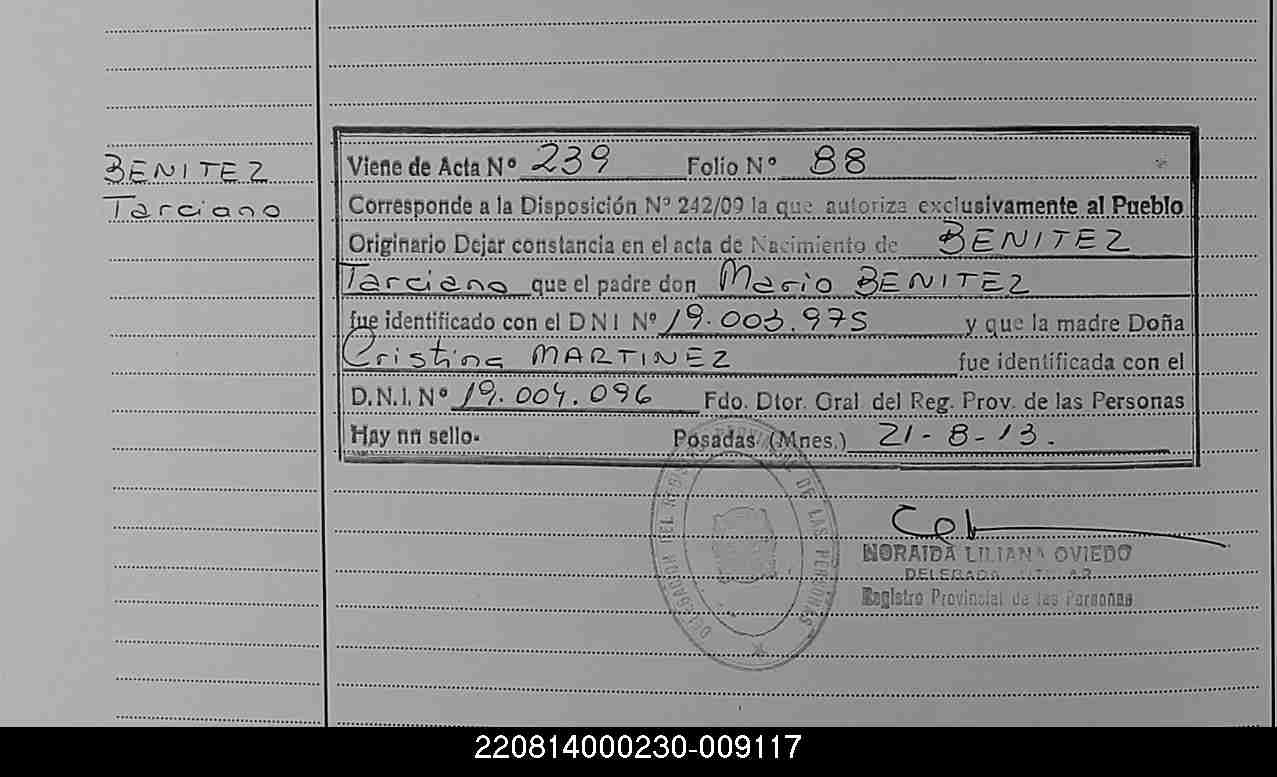 BENITEZ
Tarciano
Viene de Acta Nº 239 Folio Nº 88
Corresponde a la Disposición Nº 242/09 la que autoriza exclusivamente al Pueblo
Originario Dejar constancia en el acta de Nacimiento de BENITEZ
Tarciano que el padre don Mario BENITEZ
fue identificado con el DNI Nº 19.003.975 y que la madre Doña
Cristina MARTINEZ fue identificada con el
D.N.I. Nº 19.004.096 Fdo. Dtor. Gral del Reg. Prov. de las Personas
Hay nn sello. Posadas (Mnes.) 21-8-13.
DELEGACION DEL REGISTRO PROVINCIAL DE LAS PERSONAS
NORAIDA LILIANA OVIEDO
DELEGADA TITULAR
Registro Provincial de las Personas
220814000230-009117